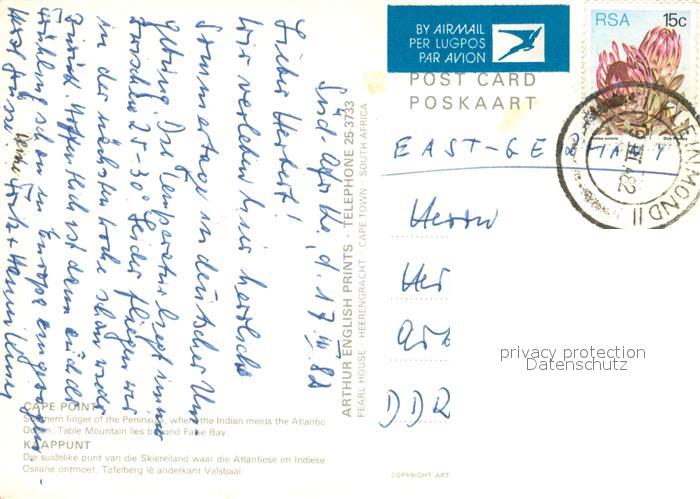 BY AIRMAIL
PER LUGPOS
PAR AVION
RSA 15c
POST CARD
POSKAART
KLEINMOND
EAST-GERMANY
Herrn
Her
DDR
privacy protection
Datenschutz
Süd-Afrika, d. 17.III.82
Lieber Herbert!
Wir verleben hier herrliche
Sommertage in deutscher Um-
gebung. Die Temperatur liegt immer
zwischen 25-30°. Leider fliegen wir
in der nächsten Woche schon wieder
zurück. Hoffentlich ist dann auch der
Frühling schon in Europa eingezogen.
Herzl. Grüsse
ARTHUR ENGLISH PRINTS · TELEPHONE 25-3733
PEARL HOUSE · HEERENGRACHT · CAPE TOWN · SOUTH AFRICA
CAPE POINT
Southern finger of the Peninsula, where the Indian meets the Atlantic
Ocean. Table Mountain lies beyond False Bay.
KAAPPUNT
Die suidelike punt van die Skiereiland waar die Atlantiese en Indiese
Oseane ontmoet. Tafelberg lê anderkant Valsbaai.
COPYRIGHT ART